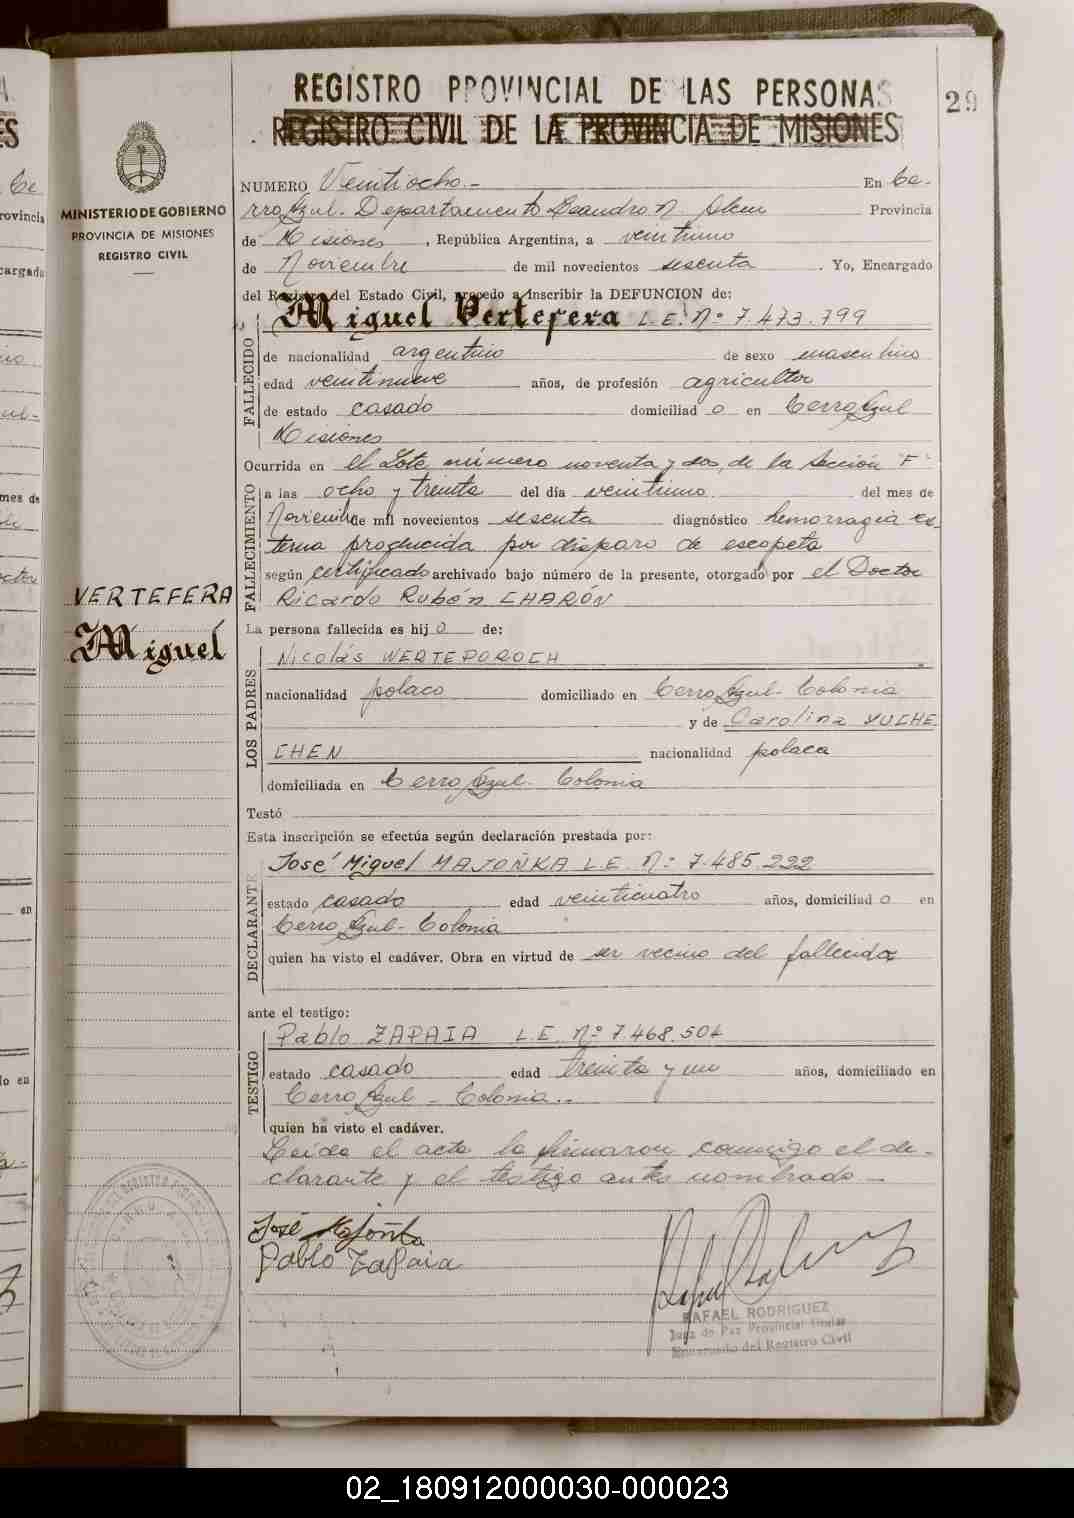 REGISTRO PROVINCIAL DE LAS PERSONAS
REGISTRO CIVIL DE LA PROVINCIA DE MISIONES
29
MINISTERIO DE GOBIERNO
PROVINCIA DE MISIONES
REGISTRO CIVIL
NUMERO Veintiocho.- En Ce-
rro Azul. Departamento Leandro N. Alem Provincia
de Misiones, República Argentina, a veintiuno
de Noviembre de mil novecientos sesenta. Yo, Encargado
del Registro del Estado Civil, procedo a inscribir la DEFUNCION de:
Miguel Vertefera L.E. Nº 7.473.799
FALLECIDO
de nacionalidad argentino de sexo masculino
edad veintinueve años, de profesión agricultor
de estado casado domiciliad o en Cerro Azul
Misiones
Ocurrida en el Lote número noventa y dos, de la Sección "F"
FALLECIMIENTO
a las ocho y treinta del día veintiuno del mes de
Noviembre de mil novecientos sesenta diagnóstico hemorragia ex-
terna producida por disparo de escopeta
según certificado archivado bajo número de la presente, otorgado por el Doctor
Ricardo Rubén CHARÓN
VERTEFERA
Miguel
La persona fallecida es hij o de:
LOS PADRES
Nicolás WERTEPOROCH
nacionalidad polaco domiciliado en Cerro Azul - Colonia
y de Carolina YUCHE
CHEN nacionalidad polaca
domiciliada en Cerro Azul - Colonia
Testó
Esta inscripción se efectúa según declaración prestada por:
DECLARANTE
José Miguel MAJOÑKA L.E. Nº 7.485.222
estado casado edad veinticuatro años, domiciliad o en
Cerro Azul - Colonia
quien ha visto el cadáver. Obra en virtud de ser vecino del fallecido
ante el testigo:
TESTIGO
Pablo ZAPAIA L.E. Nº 7.468.501
estado casado edad treinta y un años, domiciliado en
Cerro Azul - Colonia..
quien ha visto el cadáver.
Leída el acta la firmaron conmigo el de-
clarante y el testigo antes nombrado -
José Majoñka
Pablo Zapaia
RAFAEL RODRIGUEZ
Juez de Paz Provincial Titular
Encargado del Registro Civil
02_180912000030-000023